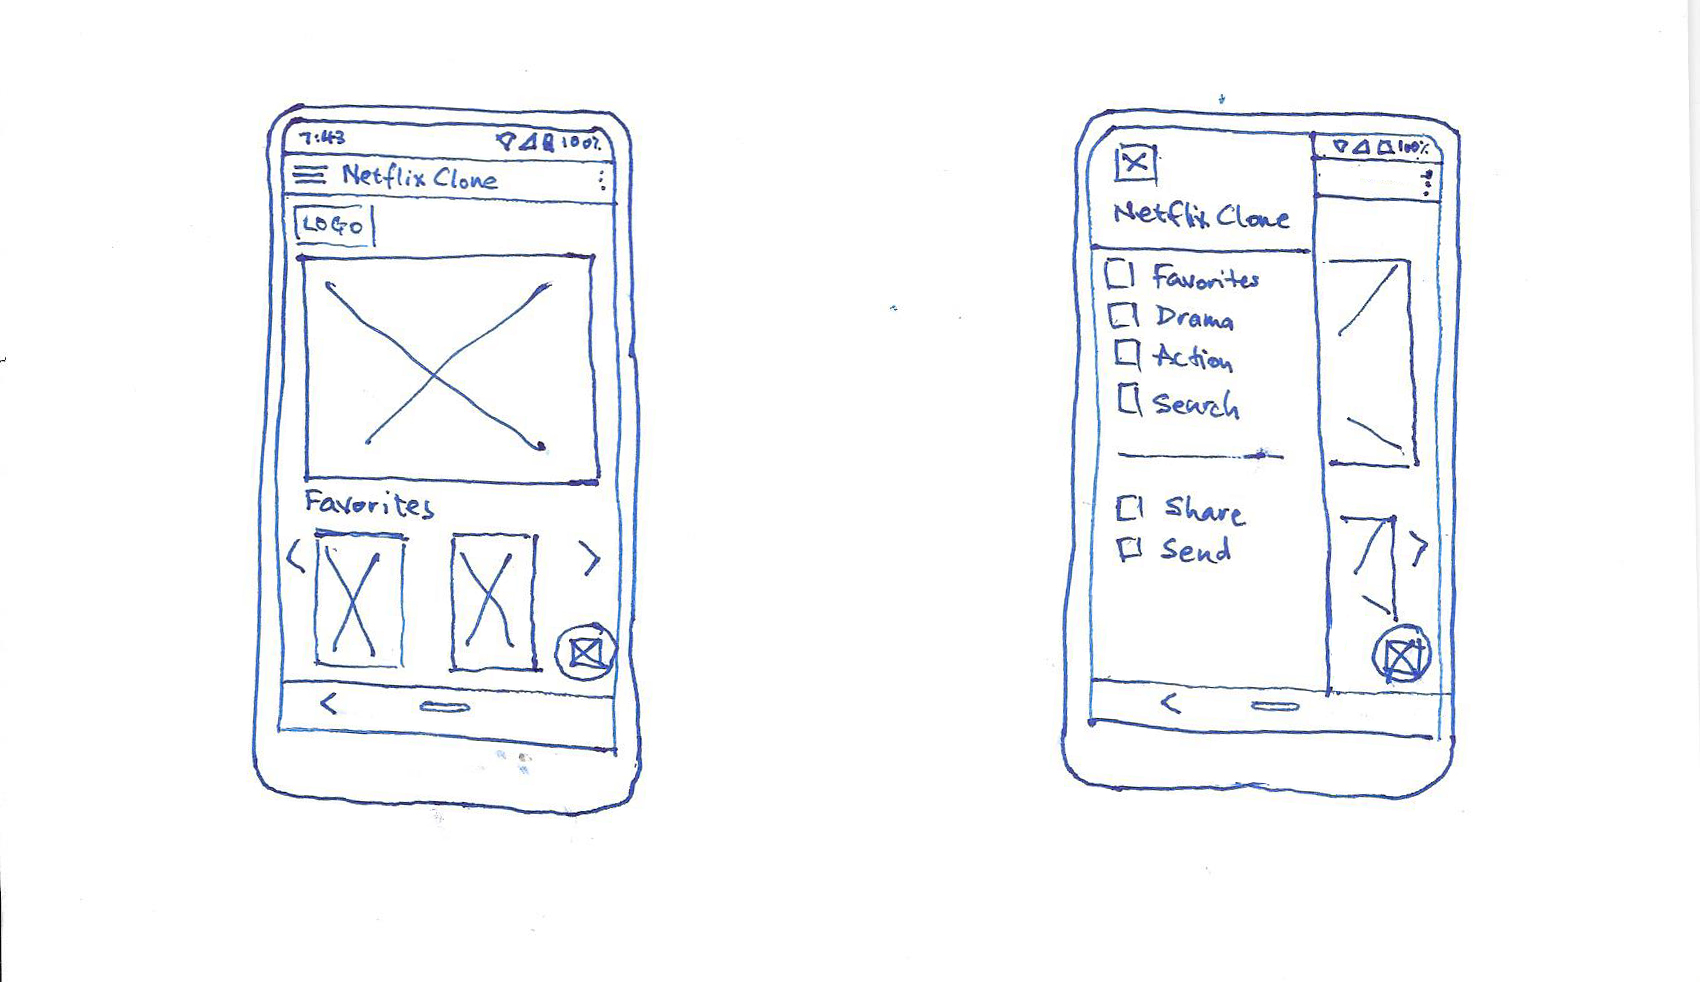 7:43 100%
Netflix Clone
LOGO
Favorites
100%
Netflix Clone
Favorites
Drama
Action
Search
Share
Send